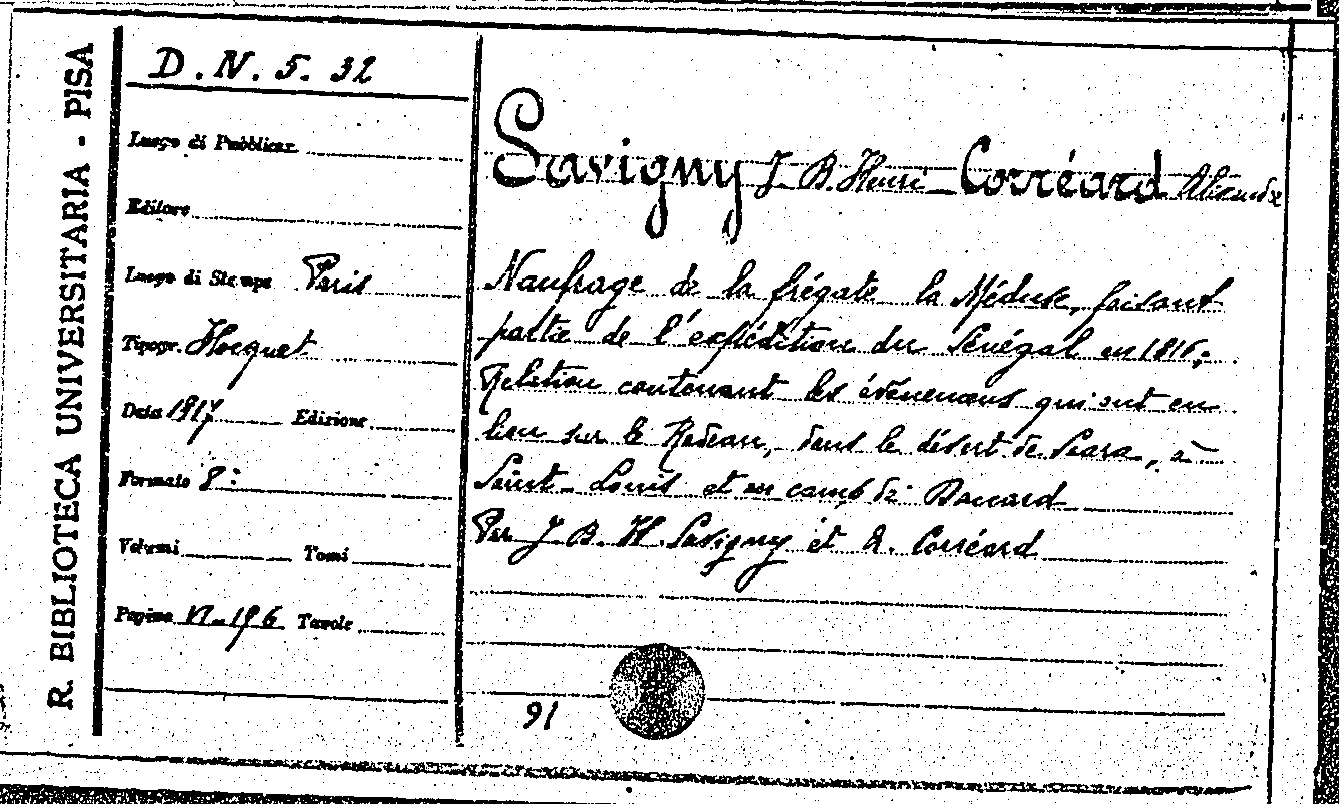 R. BIBLIOTECA UNIVERSITARIA - PISA
D. N. 5. 32
Luogo di Pubblicaz.
Editore
Luogo di Stampa Paris
Tipogr. Hocquet
Data 1817 Edizione
Formato 8:
Volumi Tomi
Pagine VI-196 Tavole
Savigny J. B. Henri - Corréard Alexandre
Naufrage de la frégate la Méduse, faisant
partie de l'expédition du Sénégal en 1816;
Relation contenant les évènemens qui ont eu
lieu sur le Radeau, dans le désert de Saara, à
Saint-Louis et au camp de Daccard
Par J. B. H. Savigny et A. Corréard
91